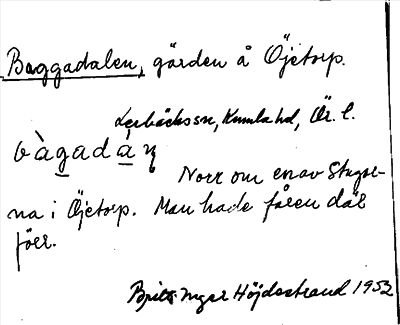 Baggadalen, gärden å Öjetorp.
Lerbäckssn, Kumla hd, Ör. l.
bàgadáɳ
Norr om en av Stugor-
na i Öjetorp. Man hade fåren där
förr.
Britt-Inger Höjdestrand 1952